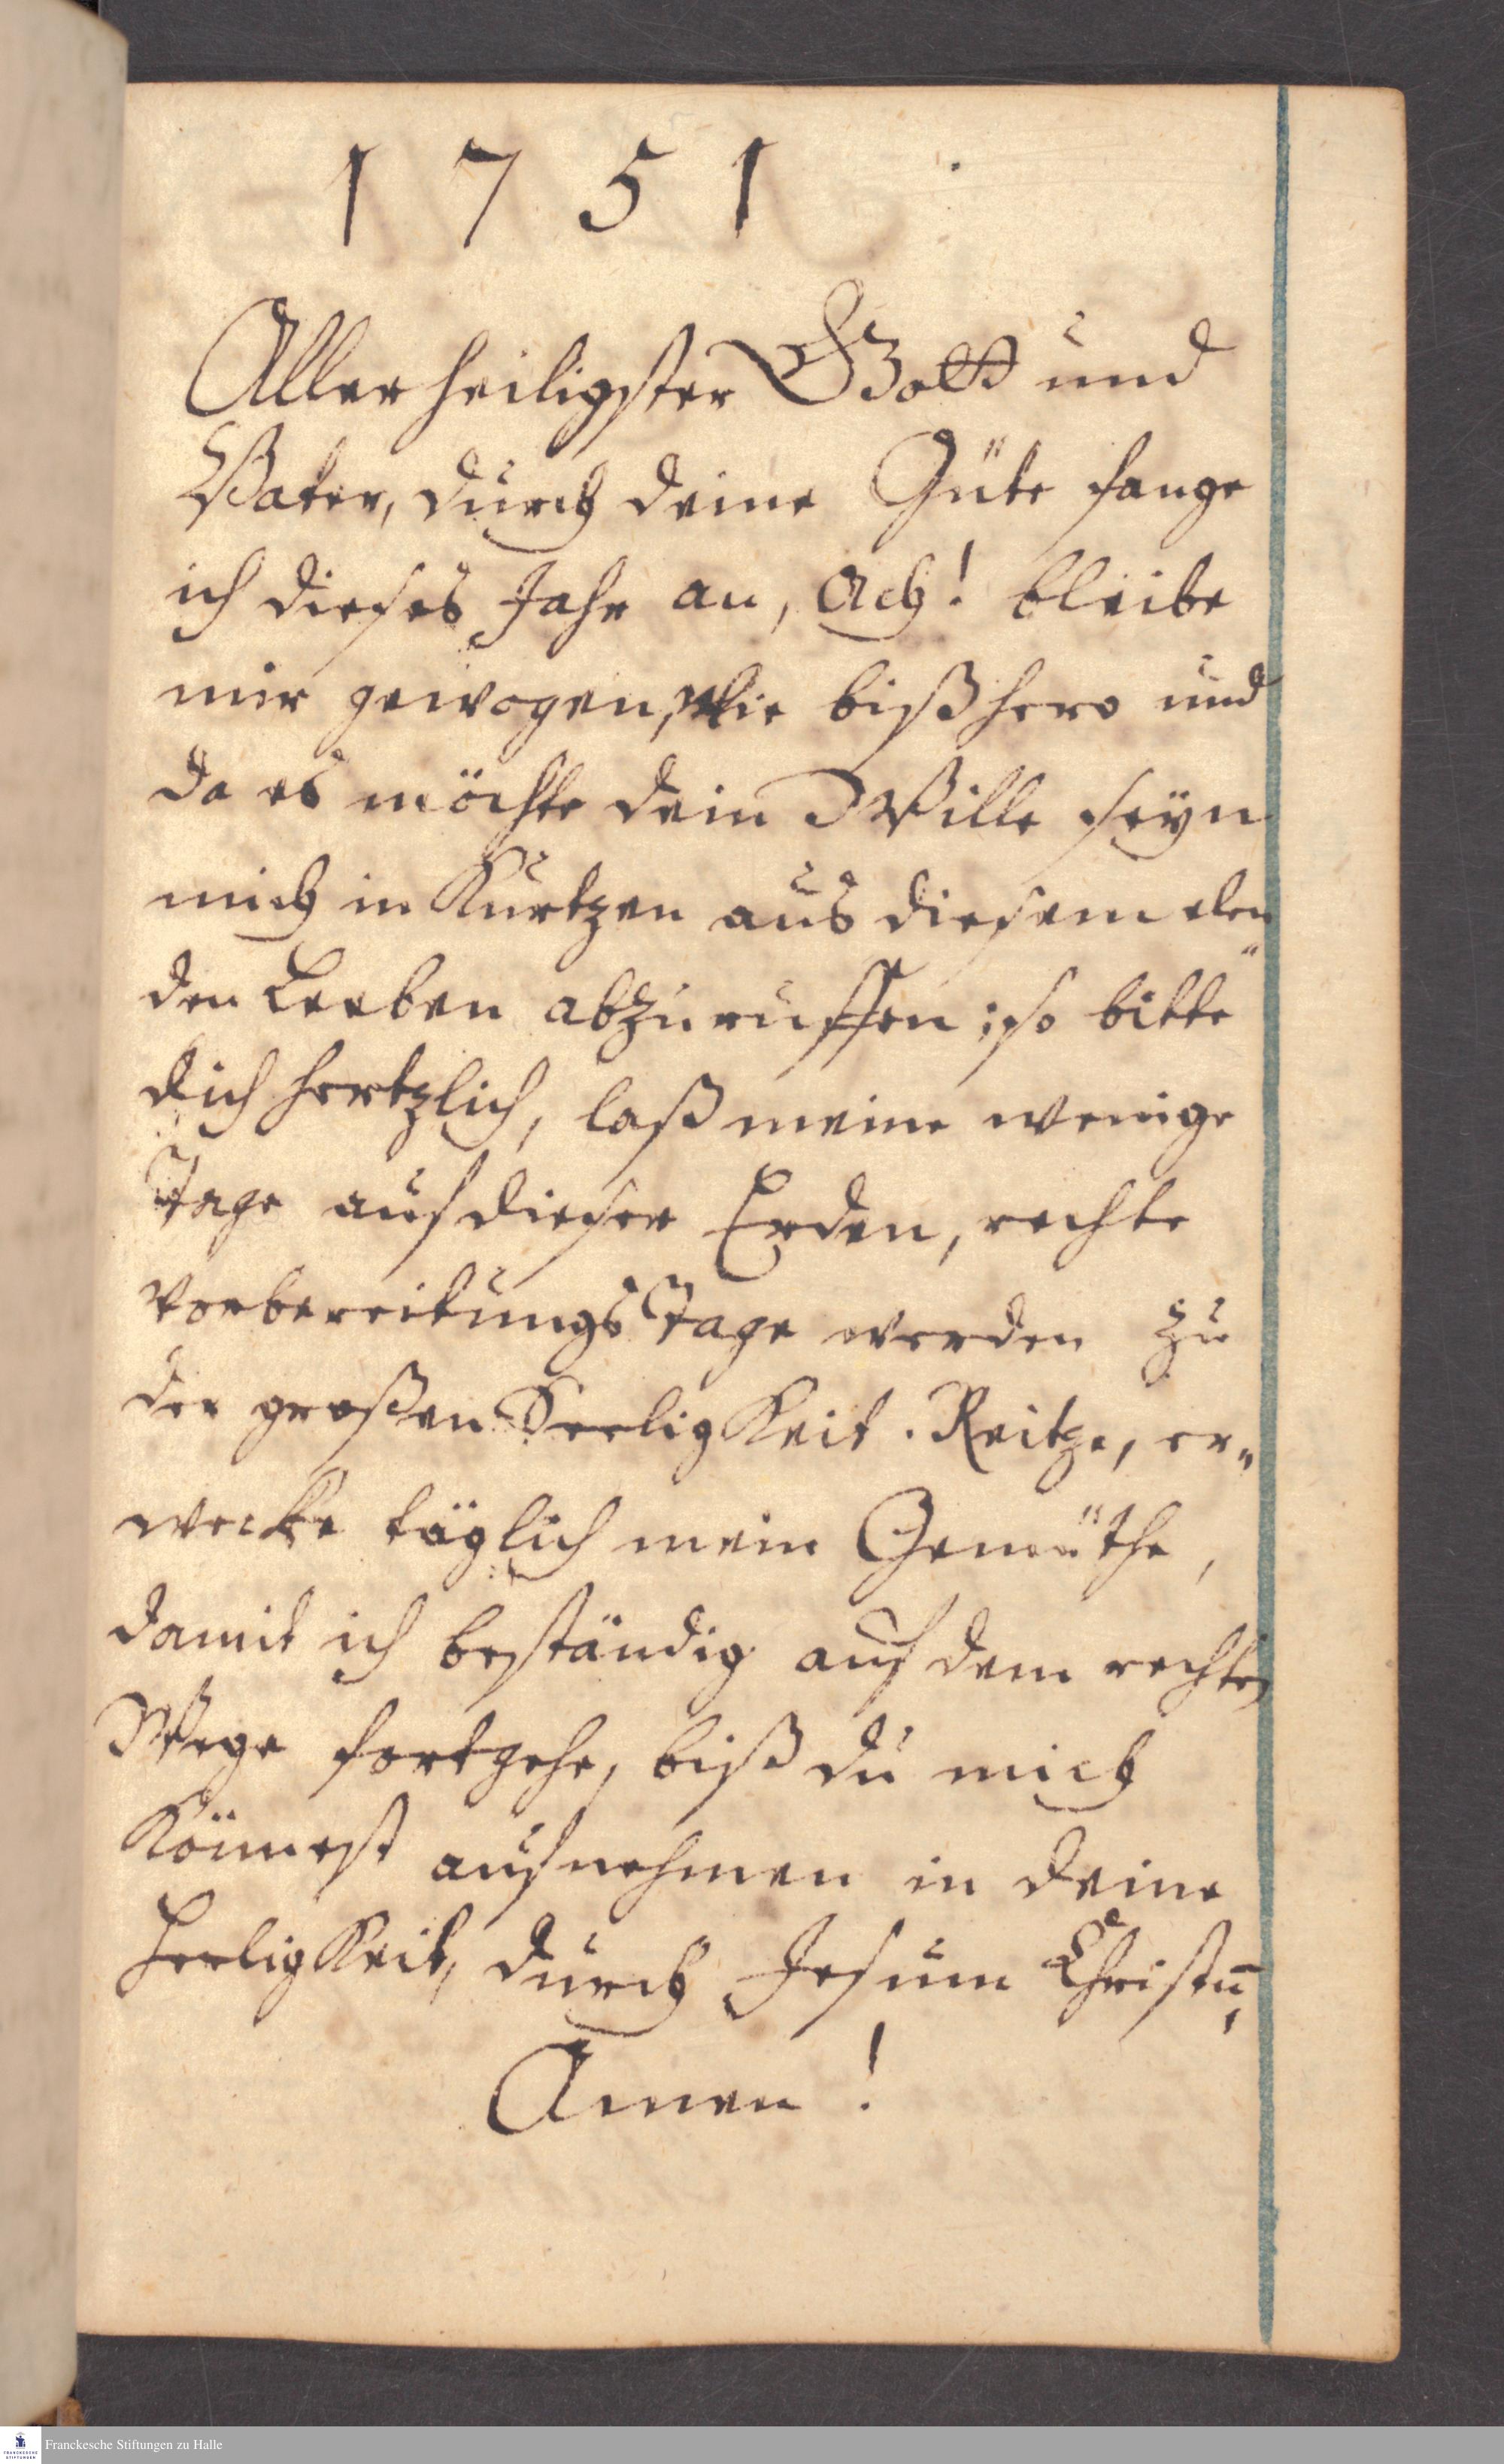 1751
Aller heiligster Gott und
Vater, durch deine Güte fange
ich dieses Jahr an, Ach! bleibe
mir gewogen, Wie bißhero und
da es möchte dein Wille seyn
mich in Kurtzen aus diesem elen"
den Leeben abzuruffen; so bitte
dich hertzlich, laß meine wenige
Tage auf dieser Erden, rechte
vorbereitungs Tage werden zu
der großen Seeligkeit. Reitze, er"
wecke täglich mein Gemüthe,
damit ich beständig auf dem rechten
Wege fortgehe, biß du mich
Könnest aufnehmen in deine
Herligkeit, durch Jesum Christu̅,
Amen!
FRANCKESCHE
STIFTUNGEN
Franckesche Stiftungen zu Halle